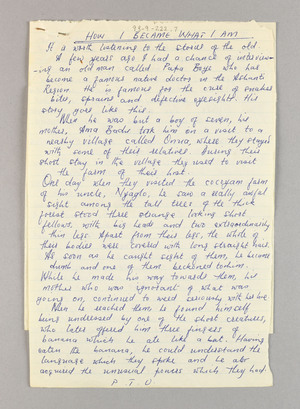 HOW I BECAME WHAT I AM
It is worth listening to the stories of the old.
A few years ago I had a chance of interview-
-ing an old man called Papa Boye who has
become a famous native doctor in the Ashanti
Region. He is famous for the cure of snakes
bites, sprains and defective eyesight. His
story goes like this.
When he was but a boy of seven, his
mother, Ama Badu took him on a visit to a
nearby village called where they stayed
with some of their relatives. During their
short stay in the village they used to visit
the farm of their host.
One day when they visited the cocoyam farm
of his uncle, he saw a really awful
sight among the tall trees of the thick
forest stood three strange looking short
fellows with big heads and two extraordinarily
thin legs. Apart from their lips, the rest of
their bodies were covered with long straight hairs.
As soon as he caught sight of them, he became
dumb and one of them beckoned to him.
While he made his way towards them, his
mother who was ignorant of what was
going on, continued to weed seriously with her hoe.
When he reached them he found himself
being undressed by one of the short creatures,
who later offered him three fingers of
banana which he ate like a bat. Having
eaten the banana, he could understand the
language which they spoke and he also
acquired the unusual powers which they had.
P T O